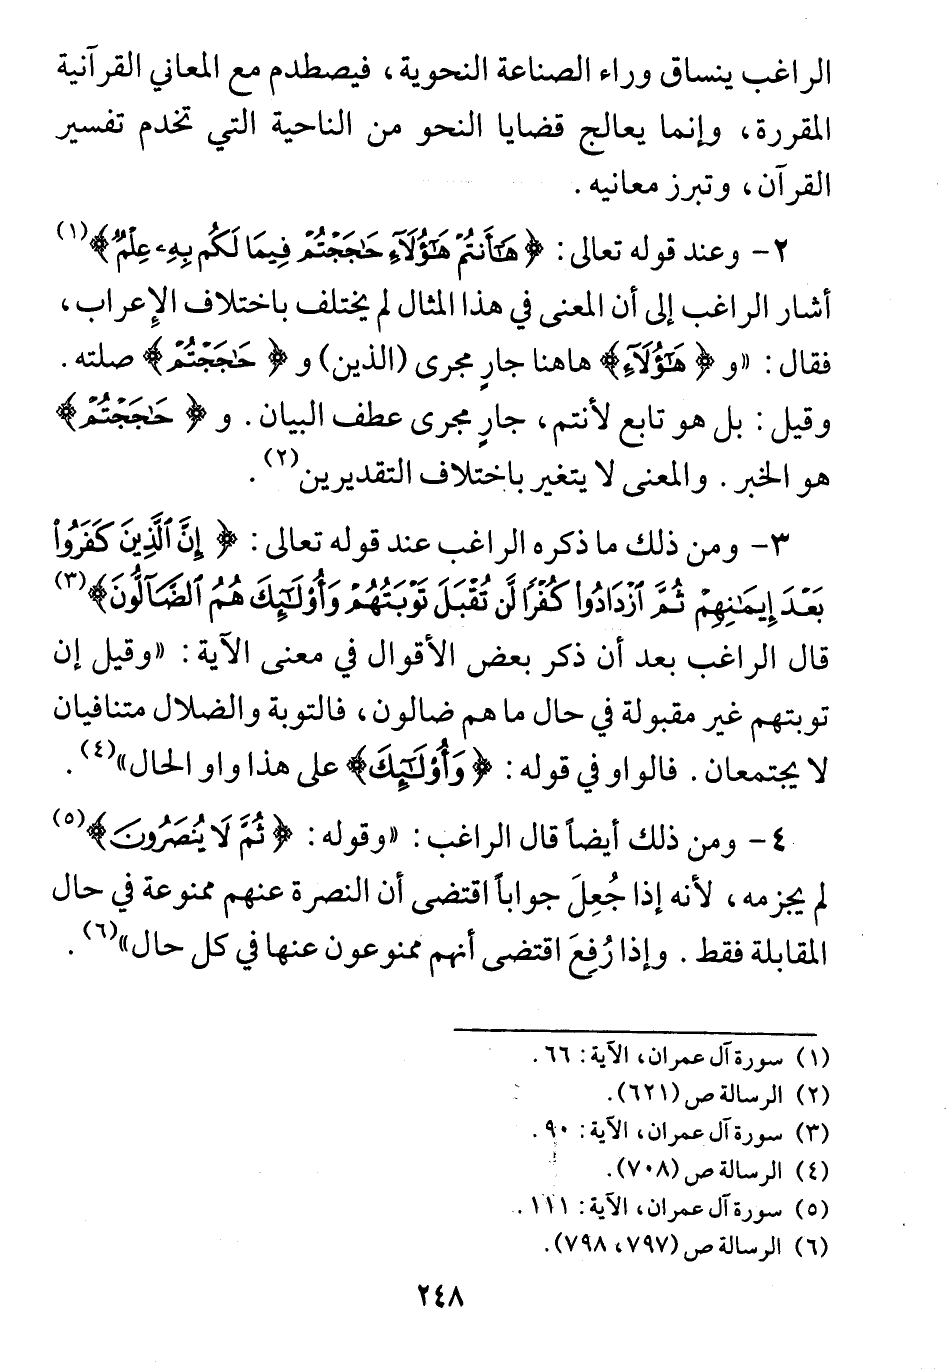 الراغب ينساق وراء الصناعة النحوية، فيصطدم مع المعاني القرآنية
المقررة، وإنما يعالج قضايا النحو من الناحية التي تخدم تفسير
القرآن، وتبرز معانيه.
٢- وعند قوله تعالى: ﴿هَٰٓأَنتُمْ هَٰٓؤُلَآءِ حَٰجَجْتُمْ فِيمَا لَكُم بِهِۦ عِلْمٌ﴾(١)
أشار الراغب إلى أن المعنى في هذا المثال لم يختلف باختلاف الإعراب،
فقال: «و ﴿هَٰٓؤُلَآءِ﴾ هاهنا جارٍ مجرى (الذين) و ﴿حَٰجَجْتُمْ﴾ صلته.
وقيل: بل هو تابع لأنتم، جارٍ مجرى عطف البيان. و ﴿حَٰجَجْتُمْ﴾
هو الخبر. والمعنى لا يتغير باختلاف التقديرين(٢).
٣- ومن ذلك ما ذكره الراغب عند قوله تعالى: ﴿إِنَّ ٱلَّذِينَ كَفَرُوا۟
بَعْدَ إِيمَٰنِهِمْ ثُمَّ ٱزْدَادُوا۟ كُفْرًا لَّن تُقْبَلَ تَوْبَتُهُمْ وَأُو۟لَٰٓئِكَ هُمُ ٱلضَّآلُّونَ﴾(٣)
قال الراغب بعد أن ذكر بعض الأقوال في معنى الآية: «وقيل إن
توبتهم غير مقبولة في حال ما هم ضالون، فالتوبة والضلال متنافيان
لا يجتمعان. فالواو في قوله: ﴿وَأُو۟لَٰٓئِكَ﴾ على هذا واو الحال»(٤).
٤- ومن ذلك أيضاً قال الراغب: «وقوله: ﴿ثُمَّ لَا يُنصَرُونَ﴾(٥)
لم يجزمه، لأنه إذا جُعِلَ جواباً اقتضى أن النصرة عنهم ممنوعة في حال
المقابلة فقط. وإذا رُفِعَ اقتضى أنهم ممنوعون عنها في كل حال»(٦).
(١) سورة آل عمران، الآية: ٦٦.
(٢) الرسالة ص (٦٢١).
(٣) سورة آل عمران، الآية: ٩٠.
(٤) الرسالة ص (٧٠٨).
(٥) سورة آل عمران، الآية: ١١١.
(٦) الرسالة ص (٧٩٧، ٧٩٨).
٢٤٨